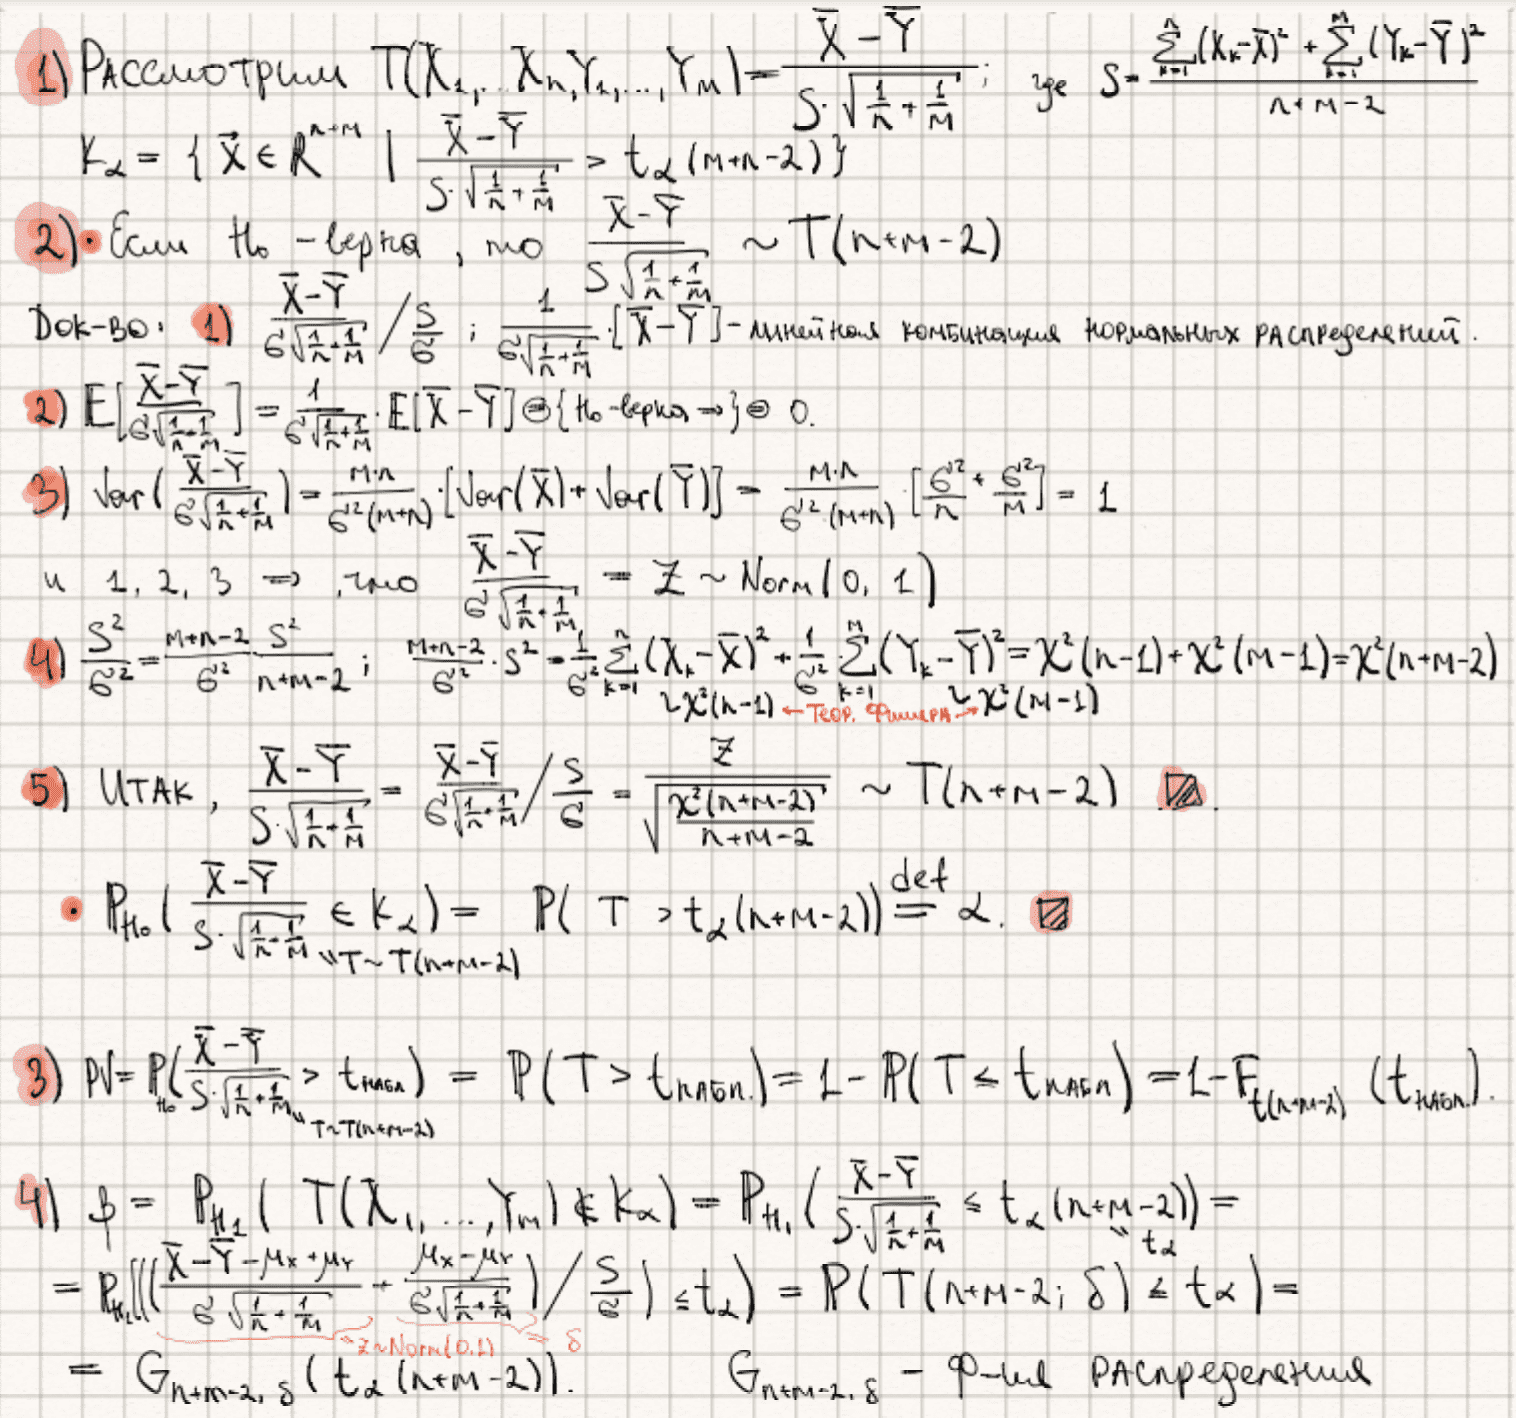 1) Рассмотрим T(X₁,...Xₙ,Y₁,...,Yₘ) = (X̄ − Ȳ)/(S·√(1/n + 1/m)); где S = (∑ₖ₌₁ⁿ(Xₖ−X̄)² + ∑ₖ₌₁ᵐ(Yₖ−Ȳ)²)/(n+m−2)
K_α = {X⃗ ∈ R^(n+m) | (X̄−Ȳ)/(S·√(1/n + 1/m)) > t_α(m+n−2)}
2) • Если H₀ – верна, то (X̄−Ȳ)/(S√(1/n + 1/m)) ~ T(n+m−2)
Док-во: 1) (X̄−Ȳ)/(σ√(1/n + 1/m)) / (S/σ); 1/(σ√(1/n + 1/m))·[X̄−Ȳ] – линейная комбинация нормальных распределений.
2) E[(X̄−Ȳ)/(σ√(1/n + 1/m))] = 1/(σ√(1/n + 1/m))·E[X̄−Ȳ] ⊜ {H₀-верна ⇒} ⊜ 0.
3) Var((X̄−Ȳ)/(σ√(1/n + 1/m))) = (m·n)/(σ²(m+n))·[Var(X̄) + Var(Ȳ)] = (m·n)/(σ²·(m+n))·[σ²/n + σ²/m] = 1
и 1, 2, 3 ⇒, что (X̄−Ȳ)/(σ√(1/n + 1/m)) = Z ~ Norm(0, 1)
4) S²/σ² = (m+n−2)/σ² · S²/(n+m−2); (m+n−2)/σ²·S² = 1/σ² ∑ₖ₌₁ⁿ(Xₖ−X̄)² + 1/σ²·∑ₖ₌₁ᵐ(Yₖ−Ȳ)² = χ²(n−1) + χ²(m−1) = χ²(n+m−2)
~χ²(n−1) ← Теор. Фишера → ~χ²(m−1)
5) Итак, (X̄−Ȳ)/(S·√(1/n + 1/m)) = (X̄−Ȳ)/(σ√(1/n + 1/m)) / (S/σ) = Z/√(χ²(n+m−2)/(n+m−2)) ~ T(n+m−2)
• P_H₀((X̄−Ȳ)/(S·√(1/n + 1/m)) ∈ K_α) = P(T > t_α(n+m−2)) =def= α.
"T~T(n+m−2)
3) PV = P_H₀((X̄−Ȳ)/(S·√(1/n + 1/m)) > t_набл) = P(T > t_набл.) = 1 − P(T ≤ t_набл) = 1 − F_t(n+m−2)(t_набл.).
"T~T(n+m−2)
4) β = P_H₁(T(X₁,...,Yₘ) ∉ K_α) = P_H₁((X̄−Ȳ)/(S·√(1/n + 1/m)) ≤ t_α(n+m−2)) =
" t_α
= P_H₁((((X̄−Ȳ−μ_X+μ_Y)/(σ√(1/n + 1/m)) + (μ_X−μ_Y)/(σ√(1/n + 1/m))) / (S/σ)) ≤ t_α) = P(T(n+m−2; δ) ≤ t_α) =
= Z~Norm(0,1) = δ
= G_n+m−2, δ (t_α(n+m−2)). G_n+m−2, δ – ф-ия распределения